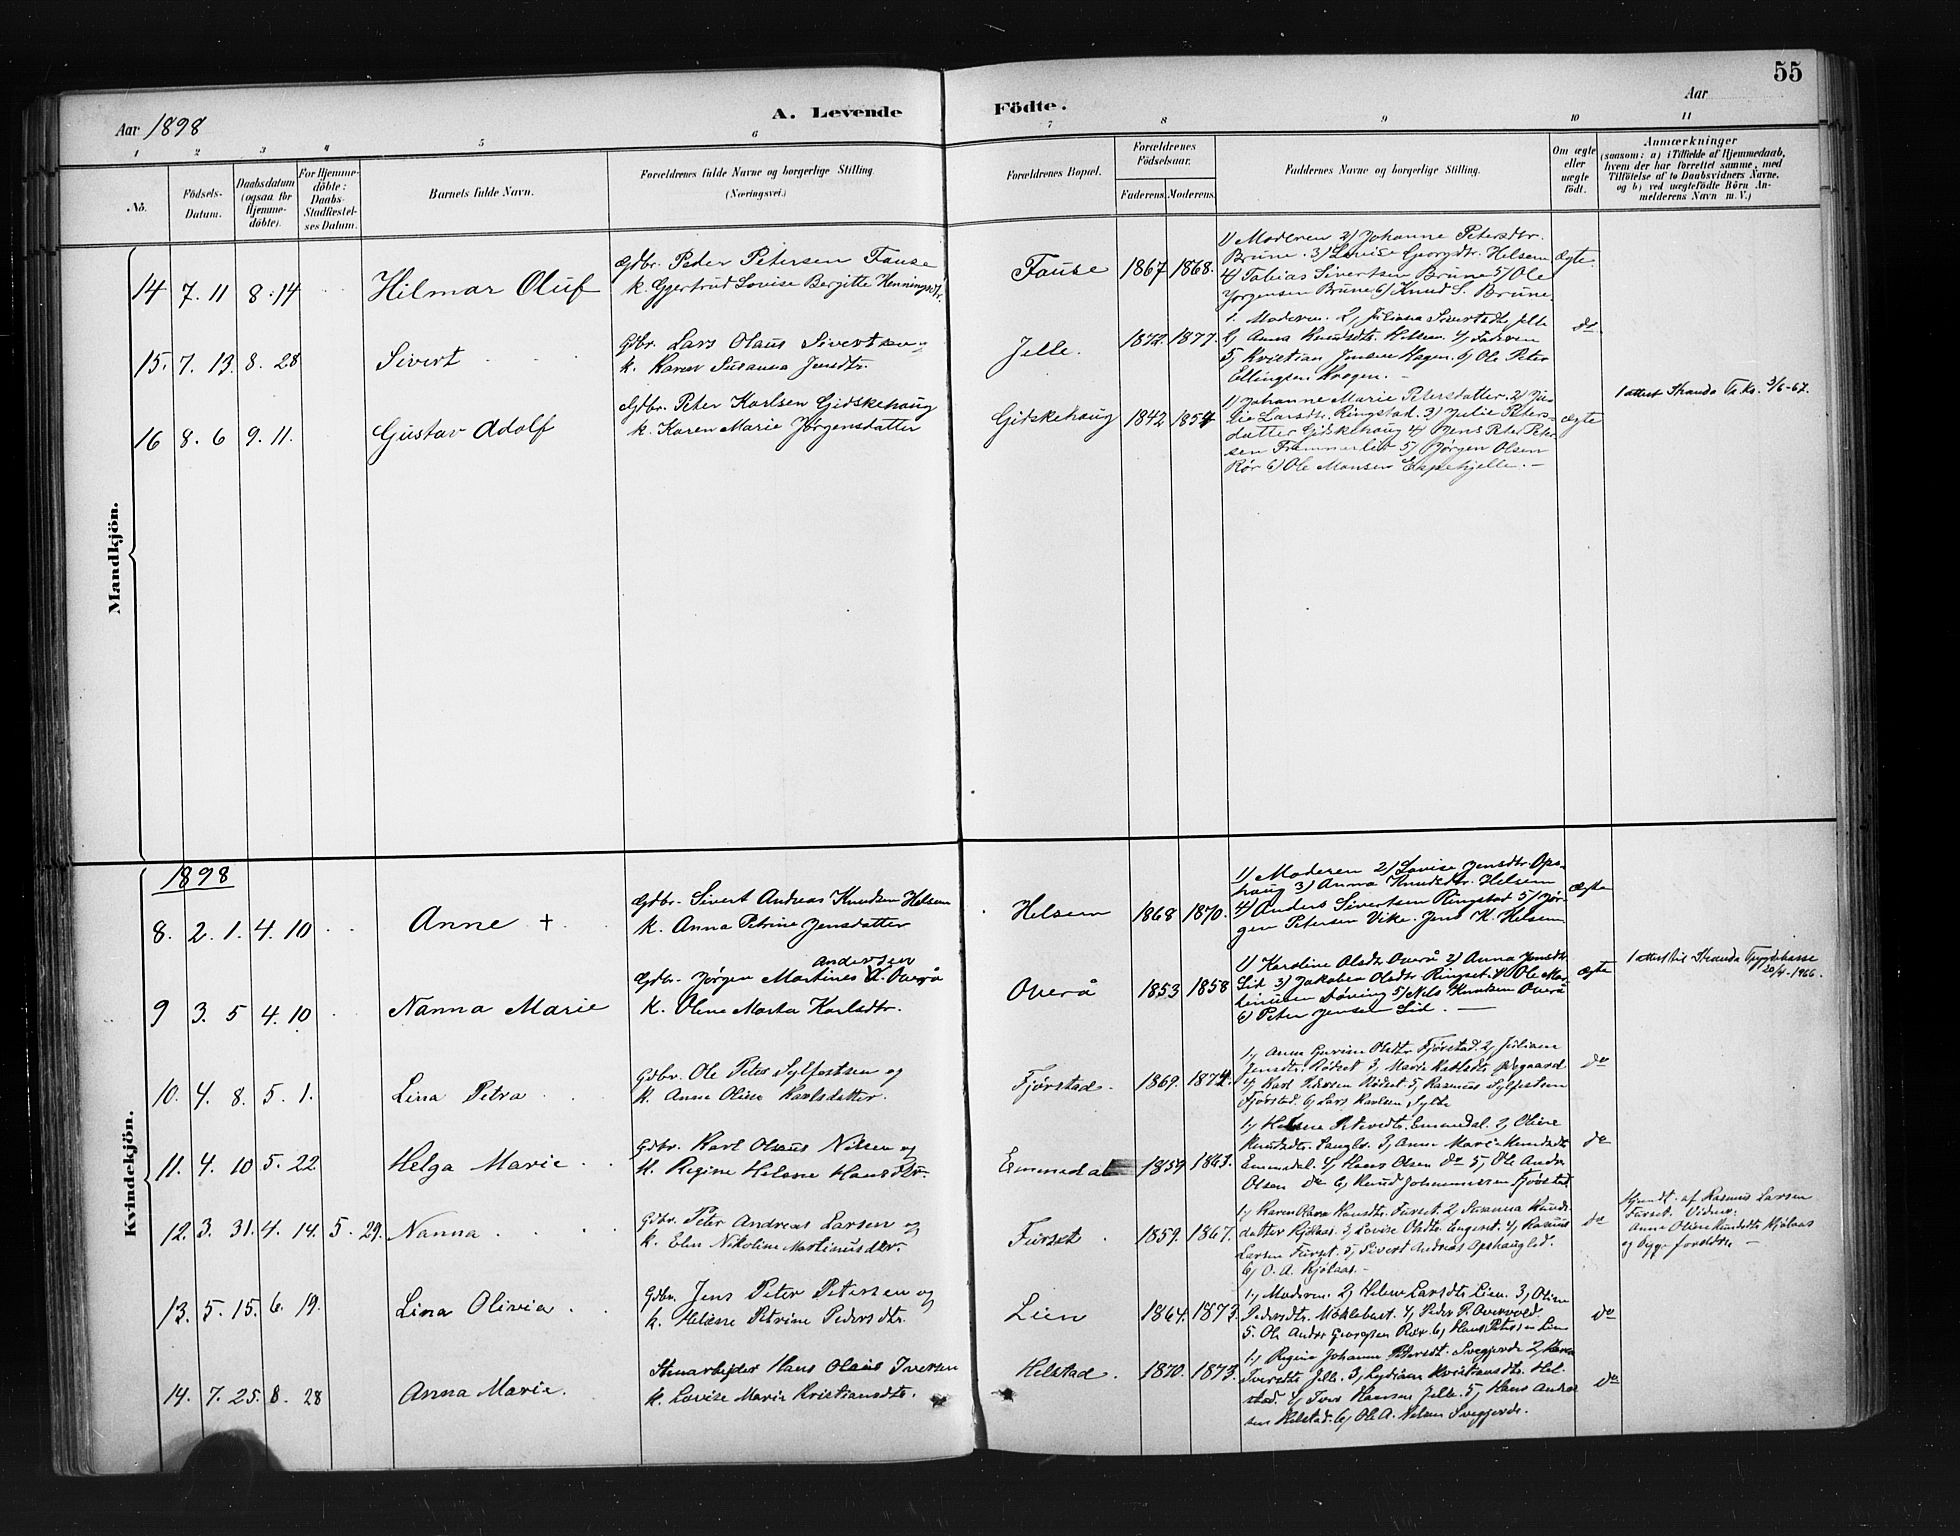 55
Aar 1898
A. Levende Födte.
Aar
1 2 3 4 5 6 7 8 9 10 11
No.
Födsels-Datum.
Daabsdatum (ogsaa for Hjemmedöbte).
For Hjemmedöbte: Daabs-Stadfæstelses Datum.
Barnets fulde Navn.
Forældrenes fulde Navne og borgerlige Stilling (Næringsvei.)
Forældrenes Bopæl.
Forældrenes Födselsaar.
Faderens. Moderens.
Faddernes Navne og borgerlige Stilling.
Om ægte eller uægte födt.
Anmærkninger
(saasom: a) i Tilfælde af Hjemmedaab, hvem der har forrettet samme, med Tilföielse af to Daabsvidners Navne. og b) ved uægtefödte Börn Anmelderens Navn m. V.)
Mandkjön.
14 7. 11 8. 14 Hilmar Oluf
Gdbr. Peder Petersen Fause
k. Gjertrud Lovise Bergitte Henningsdtr.
Fause 1867 1868.
1) Moderen 2) Johanne Petersdtr.
Brune. 3) Lovise Georgdtr. Helsem
4) Tobias Sivertsen Brune 5) Ole
Jørgensen Brune 6) Knud S. Brune
Ægte.
15. 7. 13. 8. 28 Sivert
Gdbr. Lars Olaus Sivertsen og
k. Karen Susanna Jensdtr.
Jelle. 1872 1877.
1. Moderen. 2, Juliana Sivertsdtr Jelle
3, Anna Knudsdtr. Helsem. 4, Faderen
5, Kristian Jensen Hagen. 6, Ole Peter
Ellingsen Krogen.
do
16 8. 6 9. 11. Gustav Adolf
Gdbr. Peter Karlsen Gidskehaug
k. Karen Marie Jørgensdatter
Gidskehaug 1842 1854
1) Johanne Marie Petersdatter. 2) Ju-
lie Larsdtr. Ringstad. 3) Julie Peters-
datter Gidskehaug 4) Jens Peter Peter-
sen Frammerlid 5) Jørgen Olsen
Rör 6) Ole Monsen
ægte
1 attest Stranda Tr.ks. 3/6-67.
Kvindekjön.
1898
8. 2. 1. 4. 10 Anne +
Gdbr. Sivert Andreas Knudsen Helsem
k. Anna Petrine Jensdatter
Helsem 1868 1870.
1) Moderen 2) Lovise Jensdtr. Ops-
haug 3) Anna Knudsdtr. Helsem
4) Anders Sivertsen Ringstad 5) Jør-
gen Petersen Vike. Jens K. Helsem
ægte
9 3. 5 4. 10 Nanna Marie
Andersen
Gdbr. Jørgen Martines A. Overå
k. Oline Marta Karlsdtr.
Overå 1853 1858
1) Karoline Olsdtr Overå 2) Anna Jensdtr
Lid 3) Jakobea Olsdtr Ringset. 4) Ole Mar-
tinusen Døving 5) Nils Knudsen Overå
6) Peter Jensen Lid.
ægte
1 attest til Stranda Trygdekasse
20/4-1966.
10. 4. 8. 5. 1. Lina Petra
Gdbr. Ole Peter Sylfestsen og
k. Anne Oline Karlsdatter.
Fjørstad. 1869. 1874.
1, Anne Gurine Olsdtr Fjørstad. 2, Juliane
Jensdtr. Rødset 3, Marie Karlsdtr Ødegaard
4, Karl Petersen Rødset 5, Rasmus Sylfestsen
Fjørstad. 6, Lars Karlsen Sylte
do
11. 4. 10 5. 22 Helga Marie
Gdbr. Karl Olaus Nilsen og
k. Regine Helene Hansdtr.
Emmedal 1859 1863.
1, Helene Sivertdtr. Emmedal. 2, Oline
Knudsdtr. Langlo. 3, Anne Marie Knudsdtr
Emmedal. 4, Hans Olsen do 5, Ole Andr.
Olsen do 6, Knud Johannessen Fjørstad
do
12. 3. 31. 4. 14. 5. 29. Nanna
Gdbr. Peter Andreas Larsen og
k. Elen Nikoline Martinusdtr.
Furset 1859. 1867.
1, Karen Anna Knudsdtr. Furset. 2, Susanna Knuds-
datter Kjölaas. 3, Lovise Olsdtr. Engeset. 4, Rasmus
Larsen Furset. 5, Sivert Andreas Opshauglid.
6, O. A. Kjölaas.
do
Hjemdt. af Rasmus Larsen
Furset. Vidner:
Anne Oline Knudsdtr Kjölaas
og begge forældre
13. 5. 15. 6. 19. Lina Olivia
Gdbr. Jens Peter Petersen og
k. Helene Petrine Pedersdtr.
Lien 1864. 1873.
1, Moderen. 2, Helene Larsdtr Lien. 3, Oline
Pedersdtr. Moklebust. 4, Peder P. Overvold.
5. Ole Andr. Georgsen Rør. 6, Hans Petersen Lien
do
14. 7. 25. 8. 28 Anna Marie.
Stenarbejder Hans Olaus Iversen
k. Lovise Marie Kristiansdtr.
Helstad. 1870. 1873.
1, Regine Johanne Petersdt. Svegjerde 2, Karen
Iversdtr Jelle. 3, Lydiane Kristiansdtr. Hel-
stad. 4, Iver Hansen Jelle. 5, Hans Andr.
sen Helstad. 6, Ole A. Nilsen Svegjerde.
do